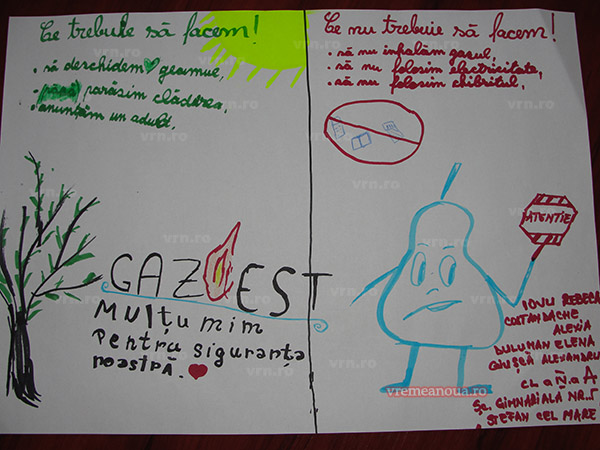 Ce trebuie să facem!
• să deschidem geamul,
• părăsim clădirea,
• anunțăm un adult.
Ce nu trebuie să facem!
• să nu inhalăm gazul,
• să nu folosim electricitate,
• să nu folosim chibritul,
ATENTIE
GAZ EST
Mulțumim
pentru siguranța
noastră.
IONU REBECA
COSTANDACHE
ALEXIA
DULUMAN ELENA
ALEXANDRU
CLASA A
ȘC. GIMNAZIALĂ NR.
ȘTEFAN CEL MARE
vremeanoua.ro
vrn.ro